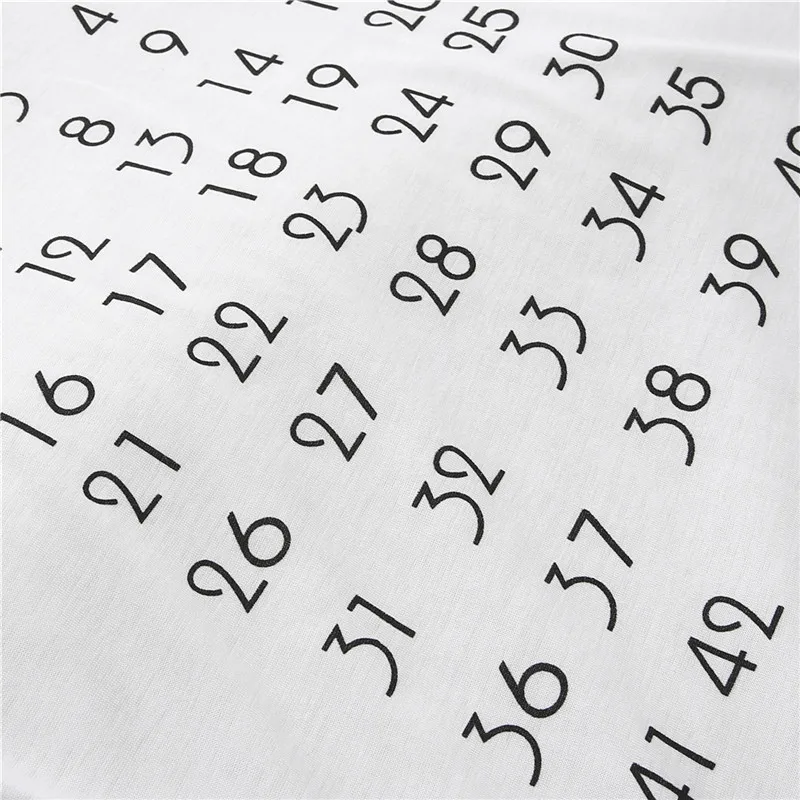 4
8 9
12 13 14
16 17 18 19 20
21 22 23 24 25
26 27 28 29 30
31 32 33 34 35
36 37 38 39
41 42